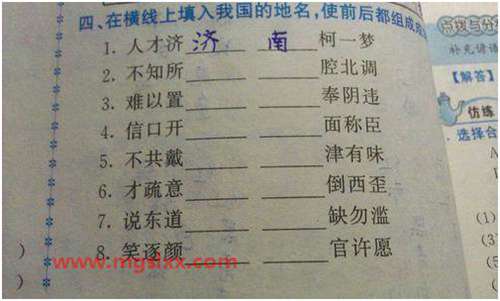 四、在横线上填入我国的地名,使前后都组成成
1. 人才济 济 南 柯一梦
2. 不知所 腔北调
3. 难以置 奉阴违
4. 信口开 面称臣
5. 不共戴 津有味
6. 才疏意 倒西歪
7. 说东道 缺勿滥
8. 笑逐颜 官许愿
www.mgslxx.com
点拨与分
补充谚语
【解答】
仿练
选择合
A
(1)
(3)
(5
)
)